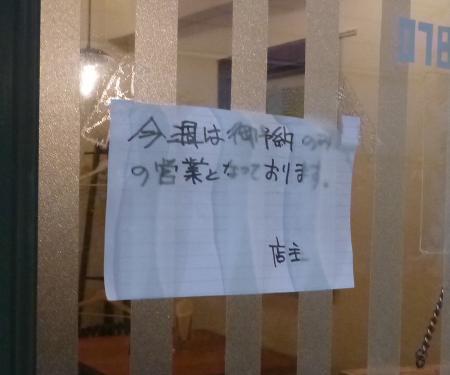 078
今週は御予約のみ
の営業となっております。
店主